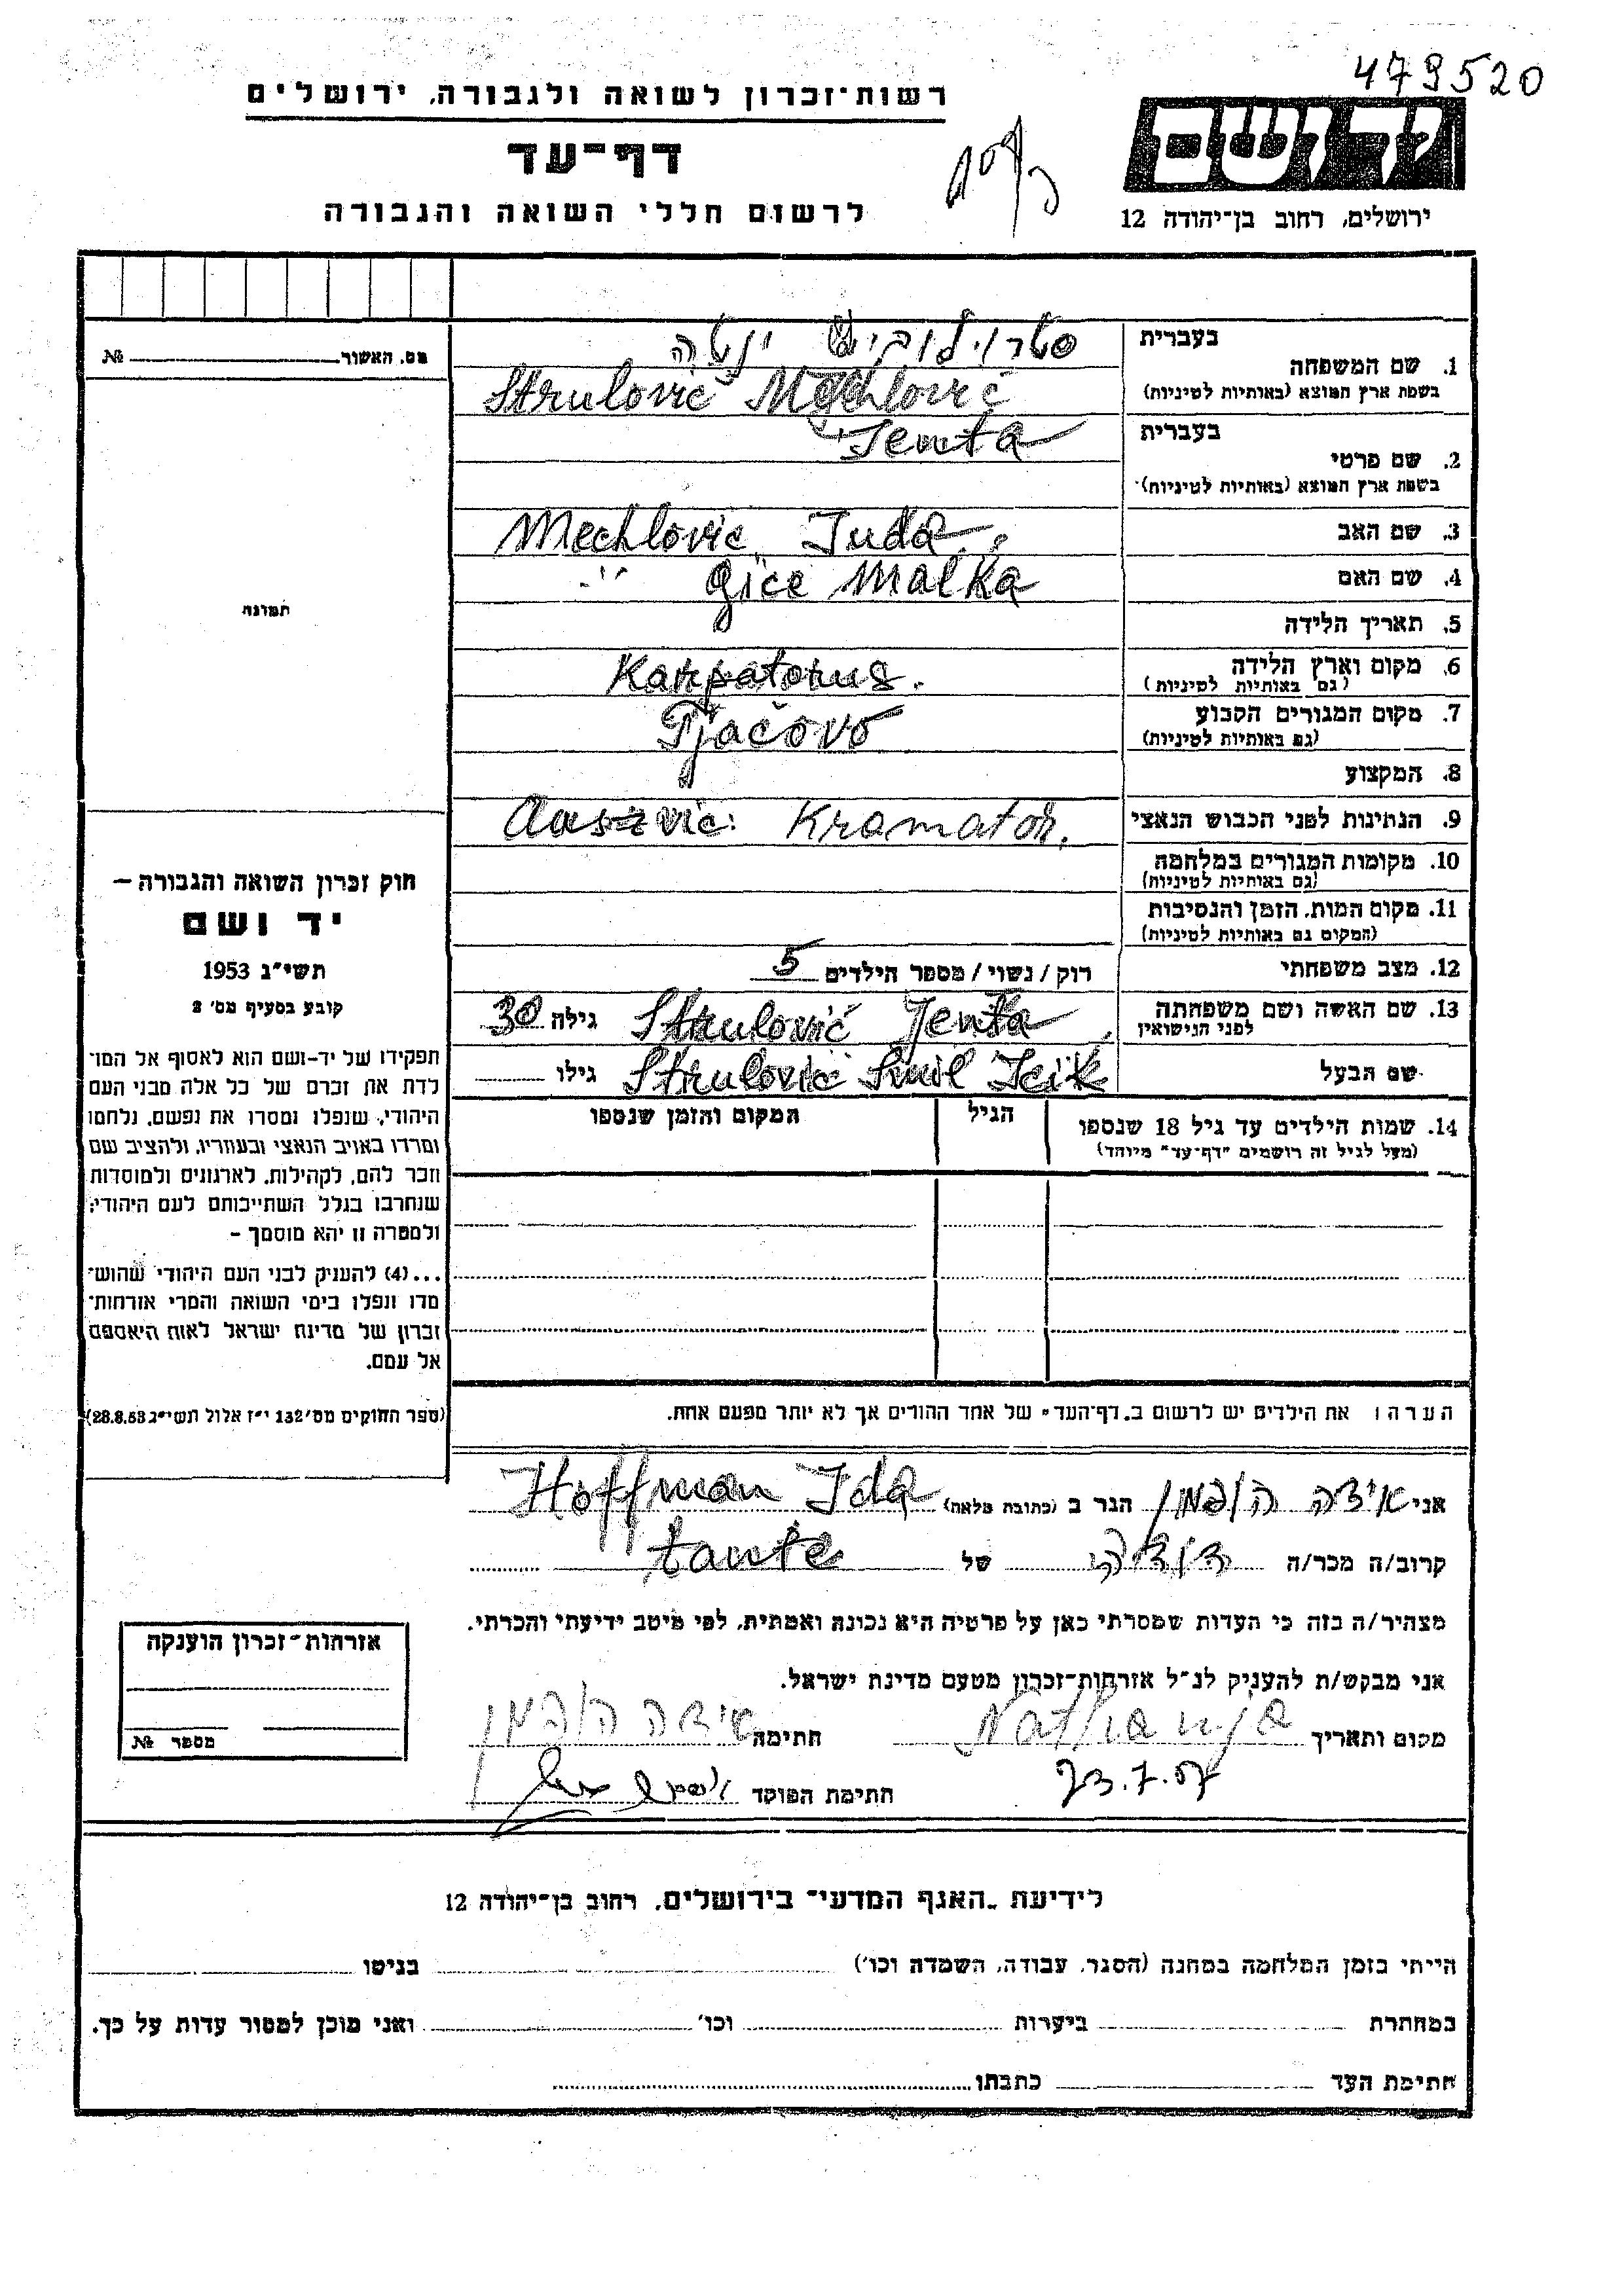 479520
רשות־זכרון לשואה ולגבורה, ירושלים
דף־עד
לרשום חללי השואה והגבורה
יד ושם
ירושלים, רחוב בן־יהודה 12
מס. האשור № 
בעברית סטרולוביש ינטה
1. שם המשפחה
בשפת ארץ המוצא (באותיות לטיניות) Strulovič Mechlovič
בעברית Jenta
2. שם פרטי
בשפת ארץ המוצא (באותיות לטיניות)
3. שם האב Mechlovic Juda
4. שם האם Gice Malka
5. תאריך הלידה
6. מקום וארץ הלידה Karpatorus.
(גם באותיות לטיניות)
7. מקום המגורים הקבוע Tjačovo
(גם באותיות לטיניות)
8. המקצוע
9. הנתינות לפני הכבוש הנאצי Auszvic Kramator.
10. מקומות המגורים במלחמה
(גם באותיות לטיניות)
11. מקום המות, הזמן והנסיבות
(המקום גם באותיות לטיניות)
12. מצב משפחתי רוק / נשוי / מספר הילדים 5
13. שם האשה ושם משפחתה Strulovič Jenta גילה 30
לפני הנישואין
שם הבעל Strulovič Smil Icik גילו
14. שמות הילדים עד גיל 18 שנספו הגיל המקום והזמן שנספו
(מעל לגיל זה רושמים "דף־עד" מיוחד)
תמונה
חוק זכרון השואה והגבורה –
יד ושם
תשי"ג 1953
קובע בסעיף מס' 2
תפקידו של יד-ושם הוא לאסוף אל המו־
לדת את זכרם של כל אלה מבני העם
היהודי, שנפלו ומסרו את נפשם, נלחמו
ומרדו באויב הנאצי ובעוזריו, ולהציב שם
וזכר להם, לקהילות, לארגונים ולמוסדות
שנחרבו בגלל השתייכותם לעם היהודי;
ולמטרה זו יהא מוסמך –
...(4) להעניק לבני העם היהודי שהוש־
מדו ונפלו בימי השואה והמרי אזרחות־
זכרון של מדינת ישראל לאות היאספם
אל עמם.
(ספר החוקים מס' 132 י"ז אלול תשי"ג 28.8.53)
הערה: את הילדים יש לרשום ב„דף־העד" של אחד ההורים אך לא יותר מפעם אחת.
אני אידה הופמן הגר ב (כתובת מלאה) Hoffman Ida
קרוב/ה מכר/ה דודה של tante
מצהיר/ה בזה כי העדות שמסרתי כאן על פרטיה היא נכונה ואמתית, לפי מיטב ידיעתי והכרתי.
אני מבקש/ת להעניק לנ"ל אזרחות־זכרון מטעם מדינת ישראל.
מקום ותאריך Nathanja חתימה אידה הופמן
23.7.57 חתימת הפוקד
אזרחות־זכרון הוענקה
מספר №
לידיעת „האגף המדעי" בירושלים, רחוב בן־יהודה 12
הייתי בזמן המלחמה במחנה (הסגר, עבודה, השמדה וכו') בגיטו
במחתרת ביערות וכו' ואני מוכן למסור עדות על כך.
חתימת העד כתבתו